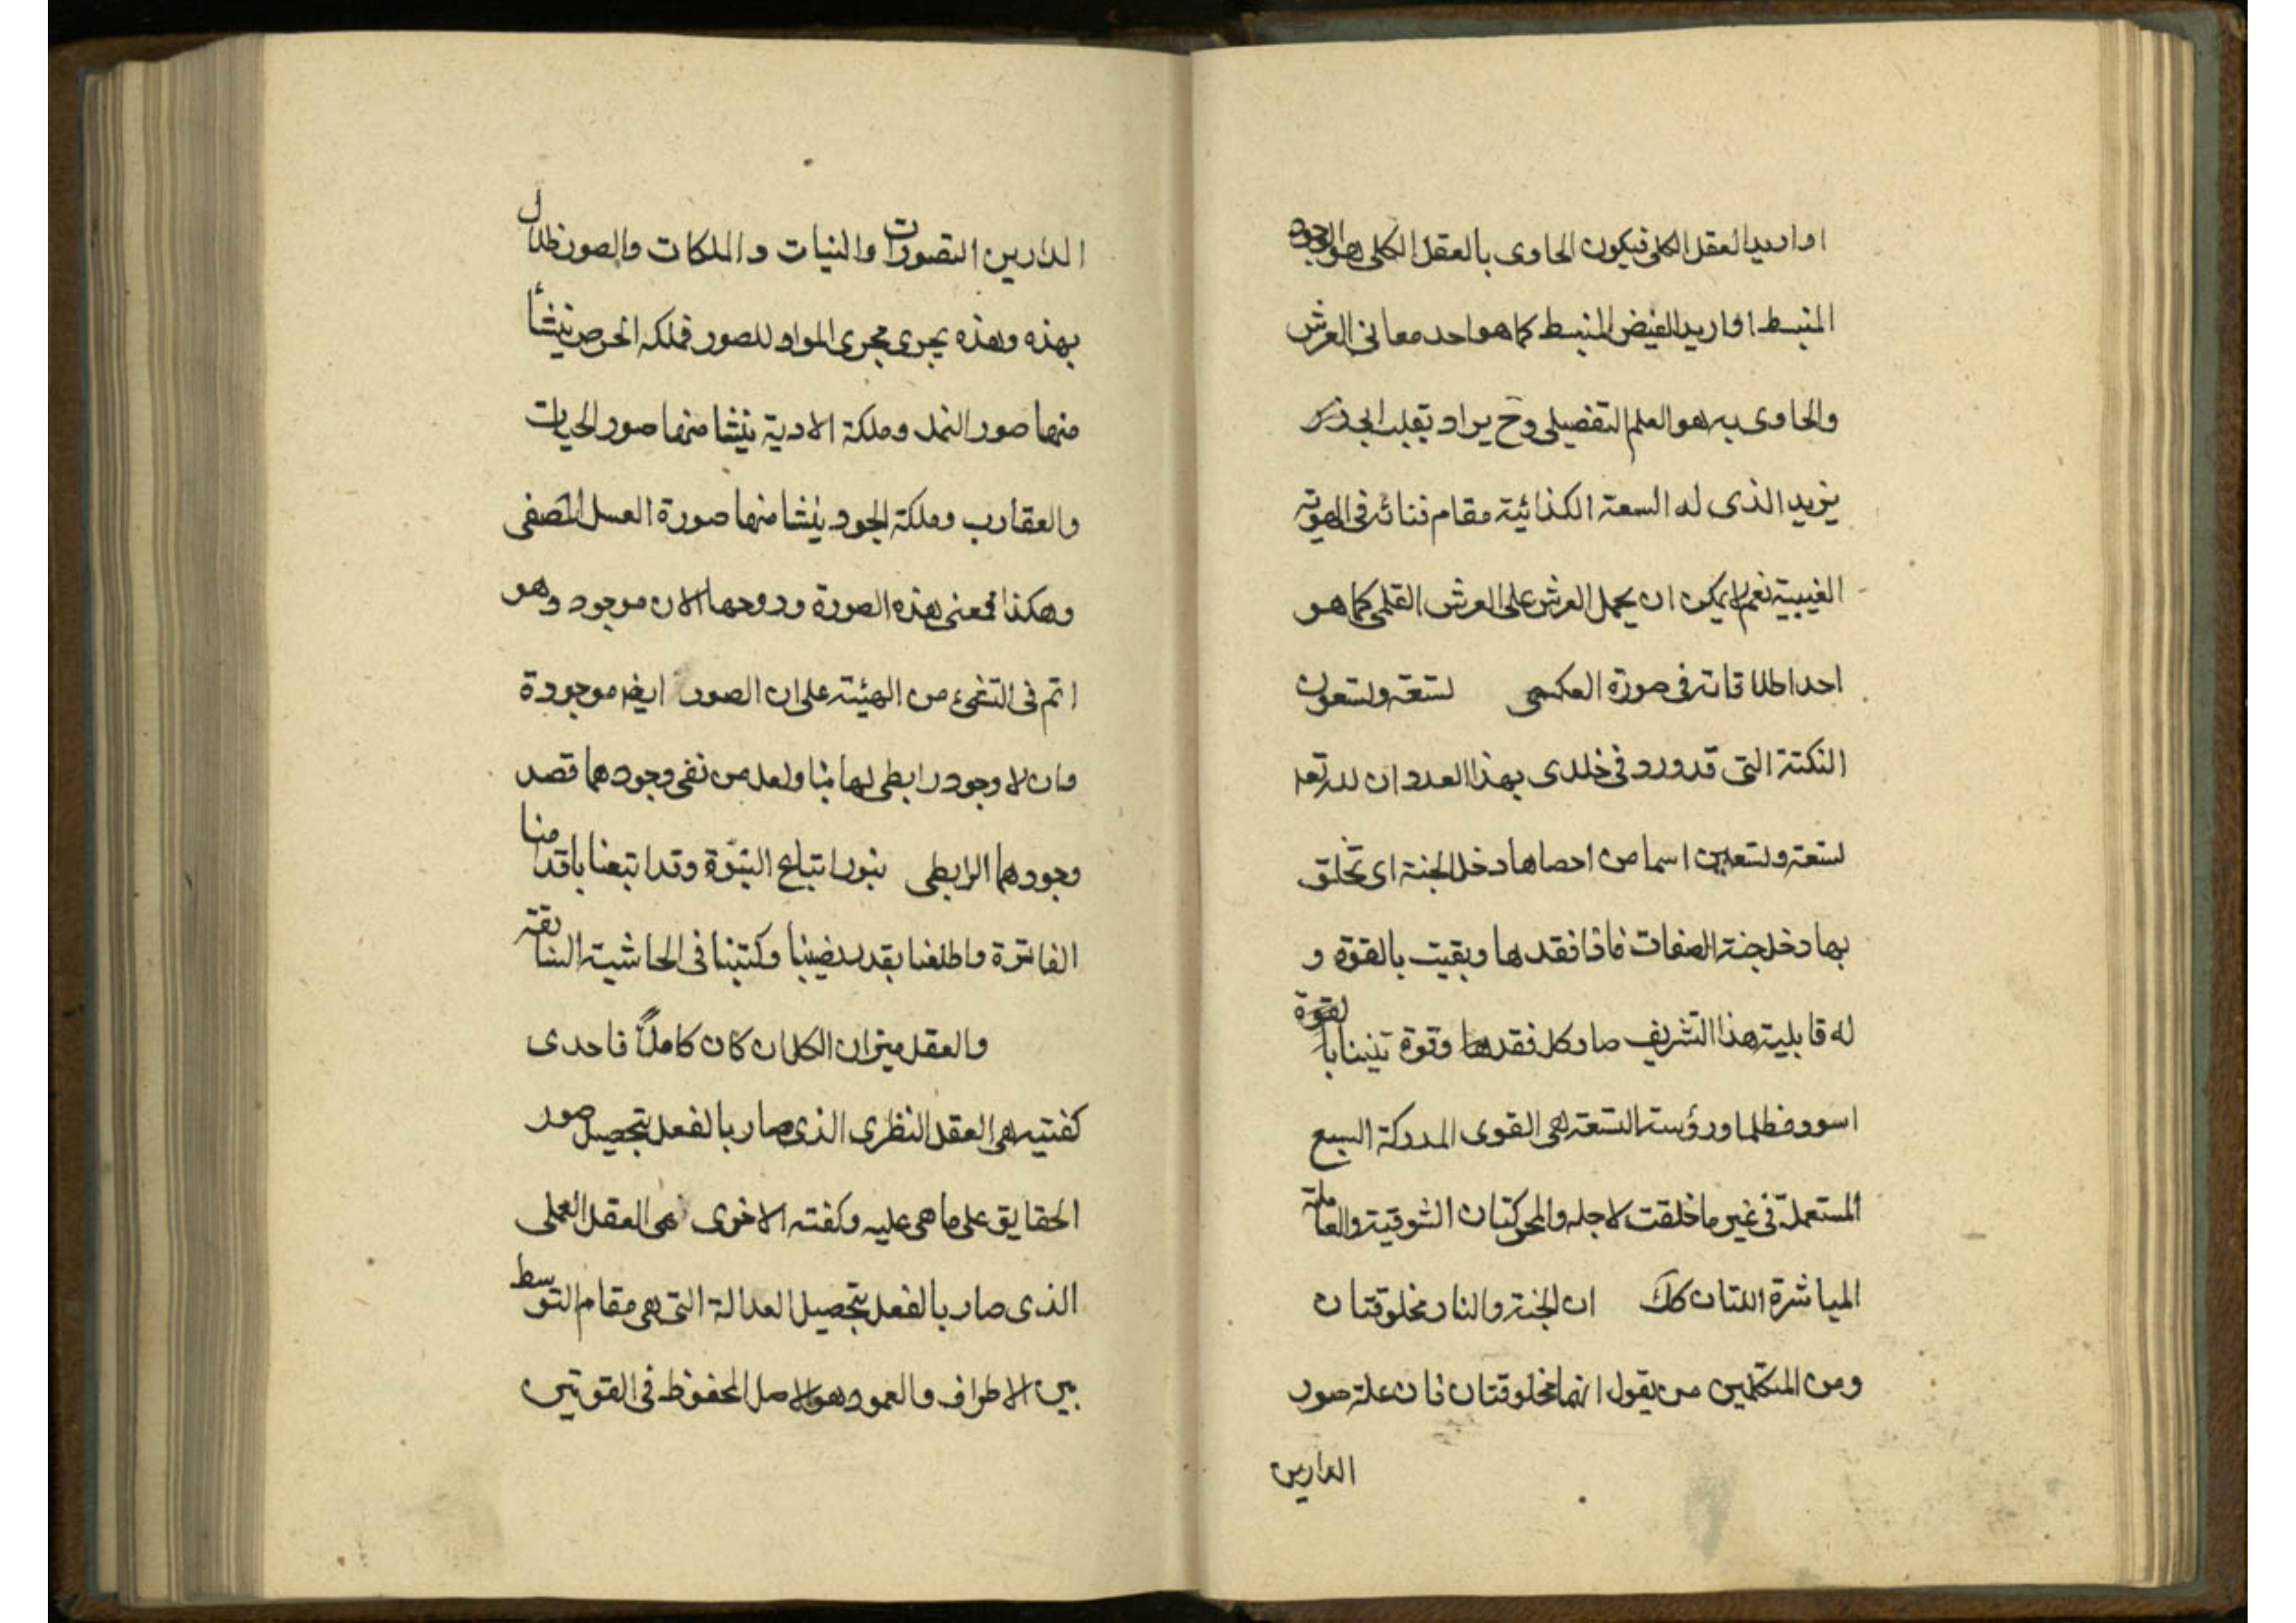 اذا اريد العقل الكلى فيكون الحاوى بالعقل الكلى هو الوجود
المنبسط اذا اريد الفيض المنبسط كما هو احد معانى العرش
والحاوى به هو العلم التفصيلى وح يراد بقلب
يزيد الذى له السعة الكذائية مقام فنائه فى الهوية
الغيبية نعم لا يمكن ان يحمل العرش على العرش القلبى كما هو
احد اطلاقاته فى صورة العكس تسعة وتسعون
النكتة التى قد ورد فى خلدى بهذا العدد ان لله تعا
تسعة وتسعين اسما من احصاها دخل الجنة اى تخلق
بها دخل جنة الصفات فاذا فقدها وبقيت بالقوة و
له قابلية هذا التشريف صار كل فقدها وقوة تنينا بالقوة
اسود وظلما ورؤسه التسعة هى القوى المدركة السبع
المستعملة فى غير ما خلقت لاجله والمحركتان الشوقية والعاملة
المباشرة اللتان كك ان الجنة والنار مخلوقتان
ومن المتكلمين من يقول انهما مخلوقتان فان علة صور
الدارين
الدارين التصورات والنيات والملكات والصور ظلال
بهذه وهذه يجرى مجرى المواد للصور فملكه الحرص ينشأ
منها صور النمل وملكة الاذية ينشا منها صور الحيات
والعقارب وملكة الجود ينشا منها صورة العسل المصفى
وهكذا فمعنى هذه الصورة وروحها الان موجود وهو
اتم فى الشىء من الهيئة على ان الصور ايضا موجودة
وان لا وجود رابطى لها لنا ولعل من نفى وجودهما قصد
وجودهما الرابطى بنور اتباع النبوة وقد اتبعنا باقدامنا
الفاترة واطلعنا بقدر نصيبنا وكتبنا فى الحاشية السابقة
والعقل ميزان الكل ان كان كاملا فاحدى
كفتيه هى العقل النظرى الذى صار بالفعل بتحصيل صور
الحقايق على ما هى عليه وكفته الاخرى هى العقل العملى
الذى صار بالفعل بتحصيل العدالة التى هى مقام التوسط
بين الاطراف والعمود هو الاصل المحفوظ فى القوتين